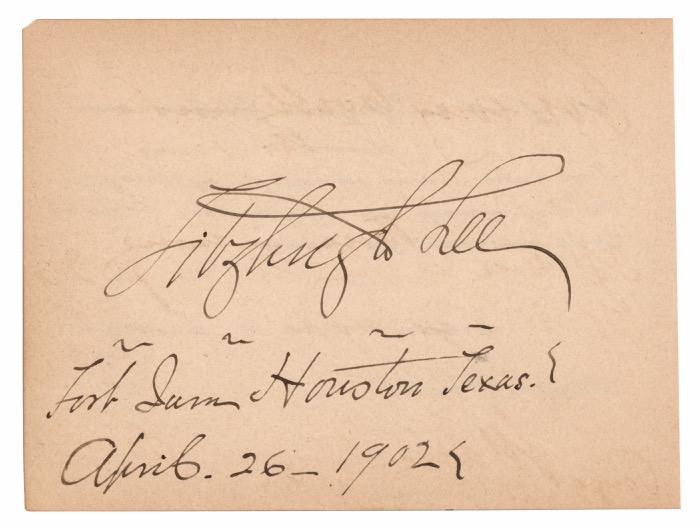 Fitzhugh Lee
Fort Sam Houston Texas.
April. 26 - 1902